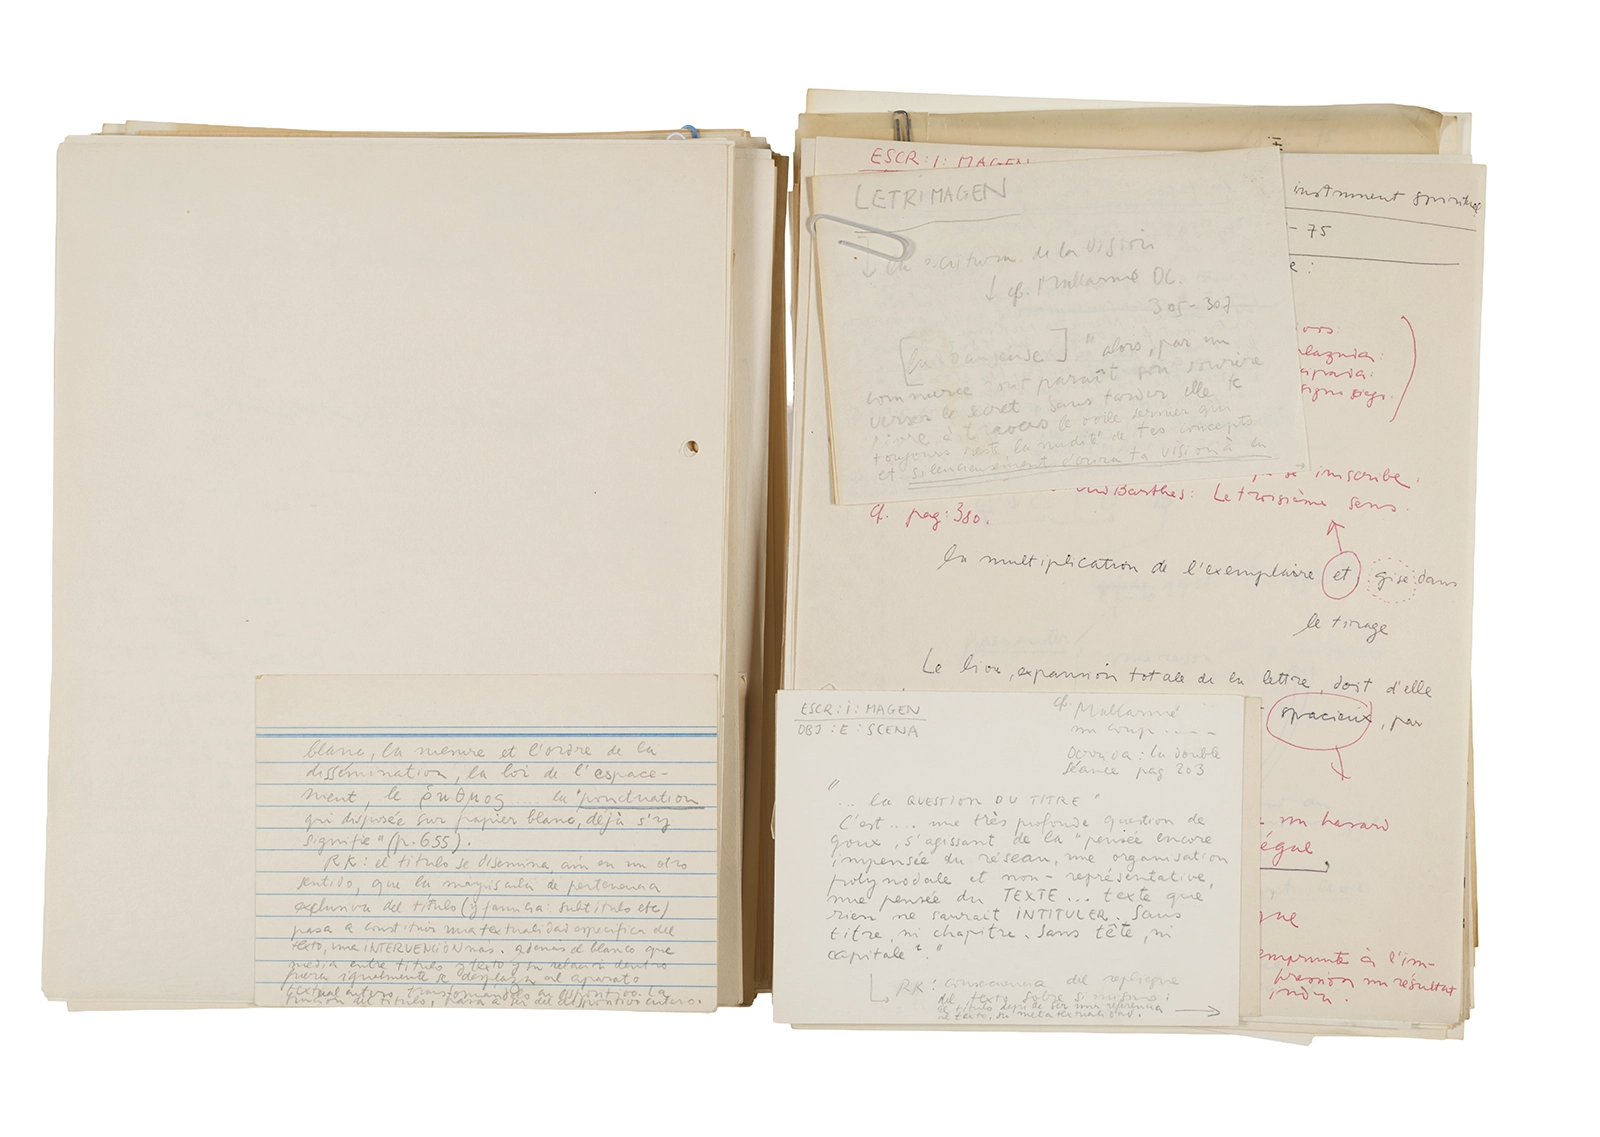 blanc, la mesure et l'ordre de la
dissémination, la loi de l'espace-
ment, le ῥυθμος .... la "ponctuation
qui disposée sur papier blanc, déjà s'y
signifie" (p. 655).
RK: el titulo se disemina, aun en un otro
sentido, que la mayuscula de pertenencia
exclusiva del titulo (y familia: subtitulo etc)
pasa a constituir una textualidad especifica del
texto, una INTERVENCIÓN más. además el blanco que
media entre titulo y texto y su relación dentro
fuera igualmente se desplaza al aparato
textual entero transformandolo en dispositivo. La
función del titulo, pasa a ser del dispositivo entero.
ESCR:I:MAGEN
LETRIMAGEN
la escritura de la visión
cf. Mallarmé OC.
305-307
" alors, par un
commerce dont paraît son sourire
verser le secret, sans tarder elle te
livre à travers le voile dernier qui
toujours reste, la nudité de tes concepts
et silencieusement écrira ta vision à la
instrument spirituel
- 75
se inscribe.
Barthes: Le troisième sens.
cf. pag: 380.
la multiplication de l'exemplaire et gise dans
le tirage
Le livre, expansion totale de la lettre, doit d'elle
spacieux, par
un hasard
emprunte à l'im-
pression un résultat
ESCR:I:MAGEN
OBJ:E:SCENA
cf. Mallarmé
un coup .....
Derrida: la double
séance pag 203
"
... la QUESTION DU TITRE"
C'est .... une très profonde question de
goux, s'agissant de la "pensée encore
impensée du réseau, une organisation
polynodale et non-représentative,
une pensée du TEXTE ... texte que
rien ne saurait INTITULER. Sans
titre, ni chapitre. Sans tête, ni
capitale"."
RK: consecuencia del repliegue
del texto sobre si mismo:
el titulo deja de ser una referencia
al texto, su metatextualidad.